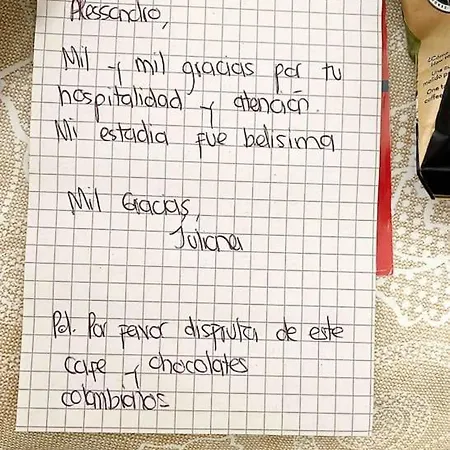 Alessandro,
Mil y mil gracias por tu
hospitalidad y atención.
Mi estadia fue belisima
Mil Gracias,
Juliana
Pd. Por favor disfruta de este
cafe y chocolates
colombianos